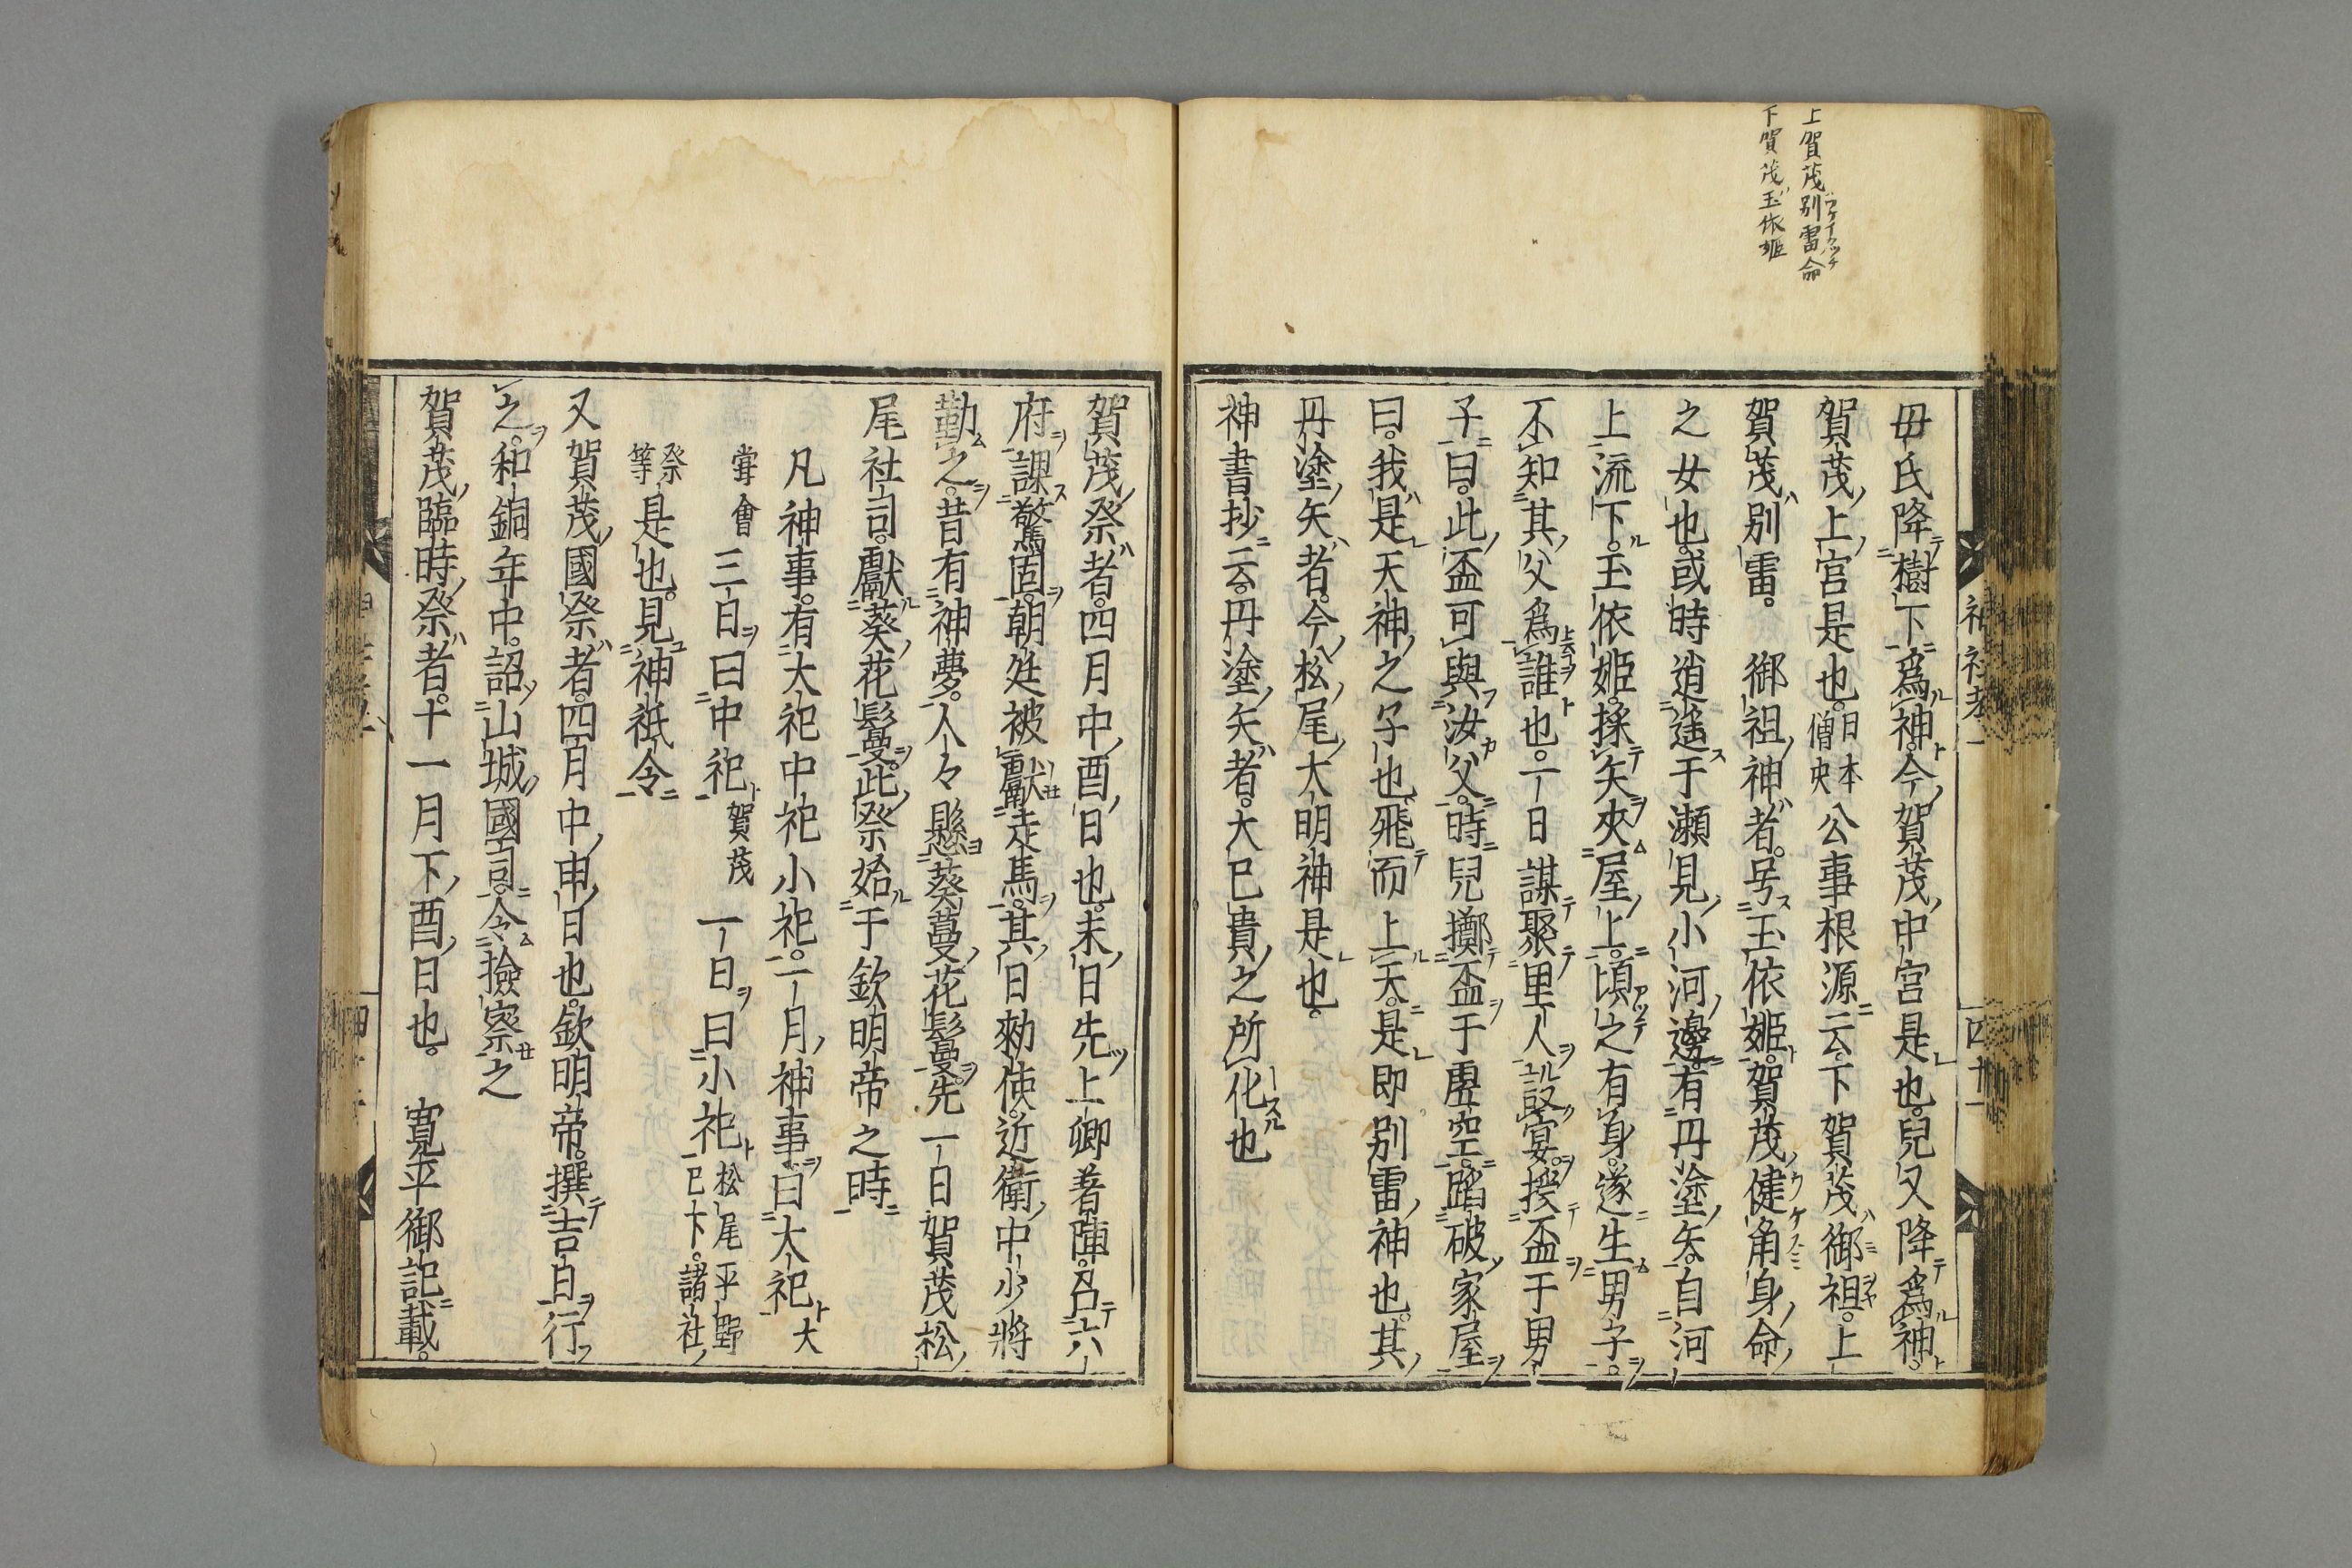 上賀茂別雷命
下賀茂玉依姫
毋氏降樹下爲神今賀茂中宮是也兒又降爲神
賀茂上宮是也日本僧史公事根源云下賀茂御祖上
賀茂別雷。御祖神者号玉依姫賀茂健角身命
之女也或時逍遙于瀬見小河邊有丹塗矢自河
上流下玉依姫採矢夾屋上頃之有身遂生男子
不知其父爲誰也一日謀聚里人設宴授盃于男
子曰此盃可與汝父時兒擲盃于虚空蹈破家屋
曰我是天神之子也飛而上天是即別雷神也其
丹塗矢者今松尾大明神是也
神書抄云丹塗矢者大巳貴之所化也
賀茂祭者四月中酉日也未日先上卿著陣召六
府課警固朝廷被獻走馬其日勑使近衛中少將
勤之昔有神夢人々懸葵蔓花鬘先一日賀茂松
尾社司獻葵花鬘此祭始于欽明帝之時
凡神事有大祀中祀小祀一月神事曰大祀大
嘗會三日曰中祀賀茂一日曰小祀松尾平野巳下諸社
祭等是也見神祇令
又賀茂國祭者四月中申日也欽明帝撰吉日行
之和銅年中詔山城國司令撿察之
賀茂臨時祭者十一月下酉日也 寛平御記載
神社考一
四十一